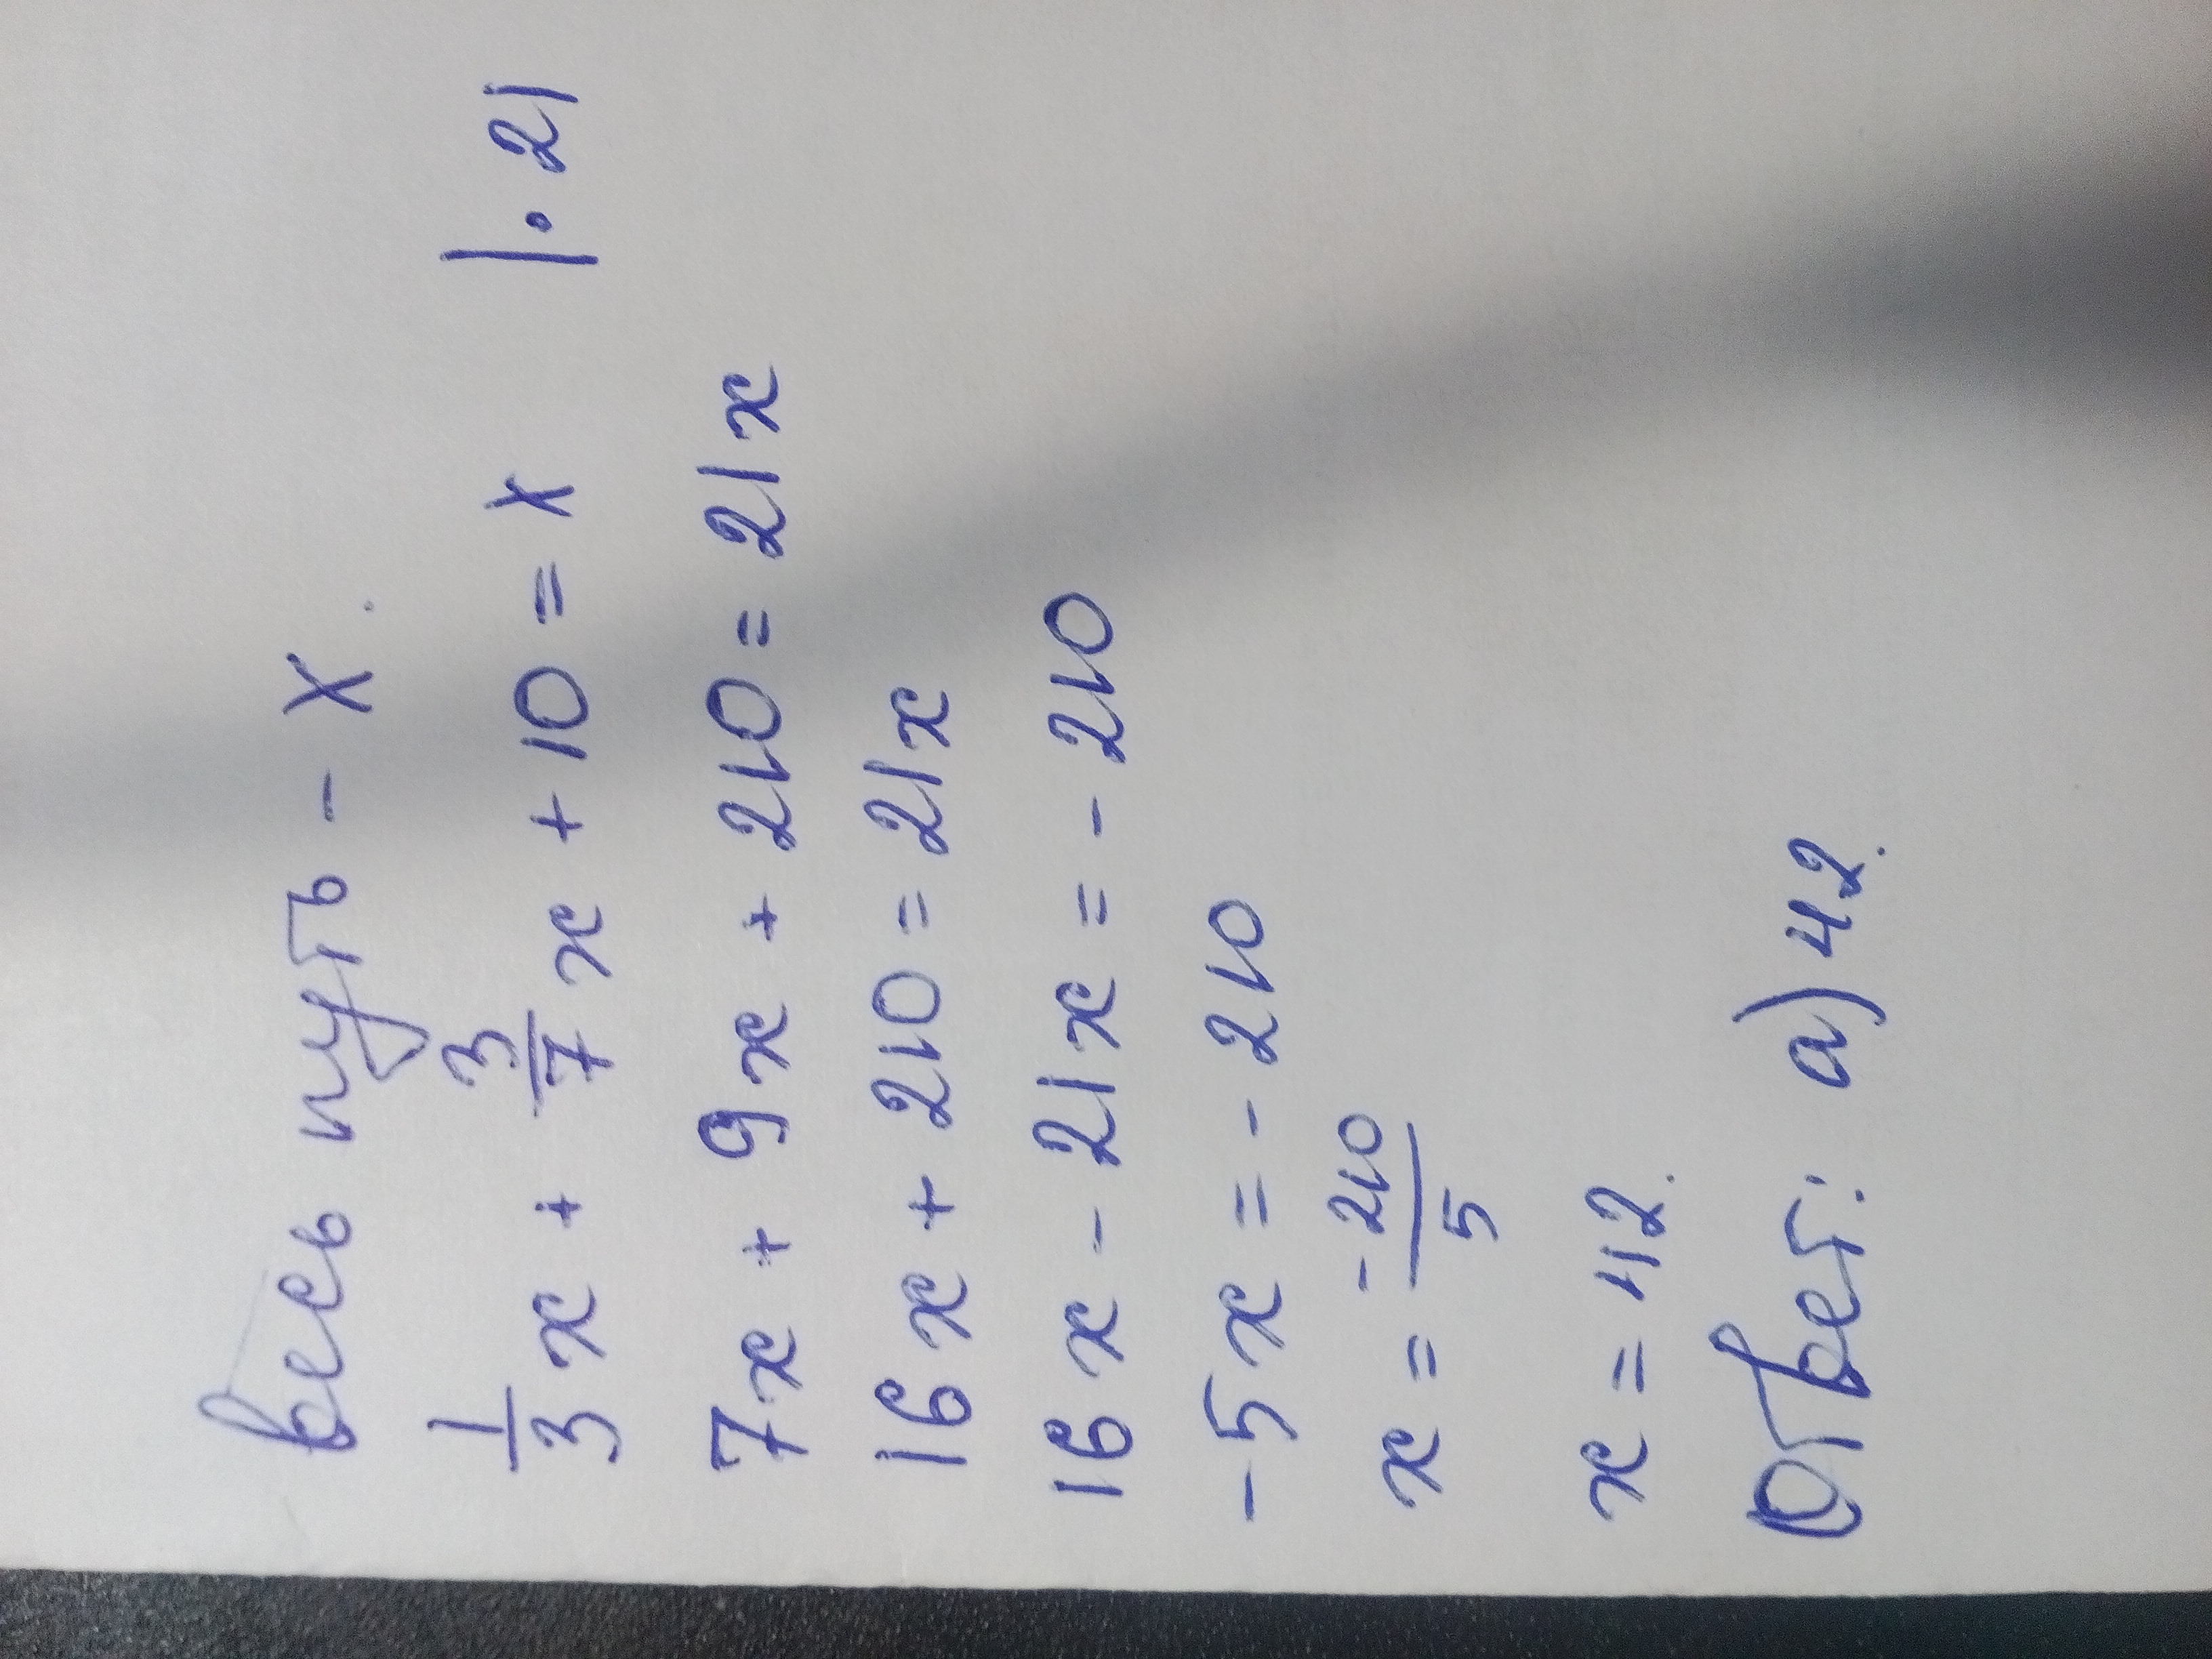 Весь путь - X.
1/3 x + 3/7 x + 10 = x |· 21
7x + 9x + 210 = 21x
16x + 210 = 21x
16x - 21x = - 210
-5x = - 210
x = -210/5
x = 42.
Ответ: а) 42.